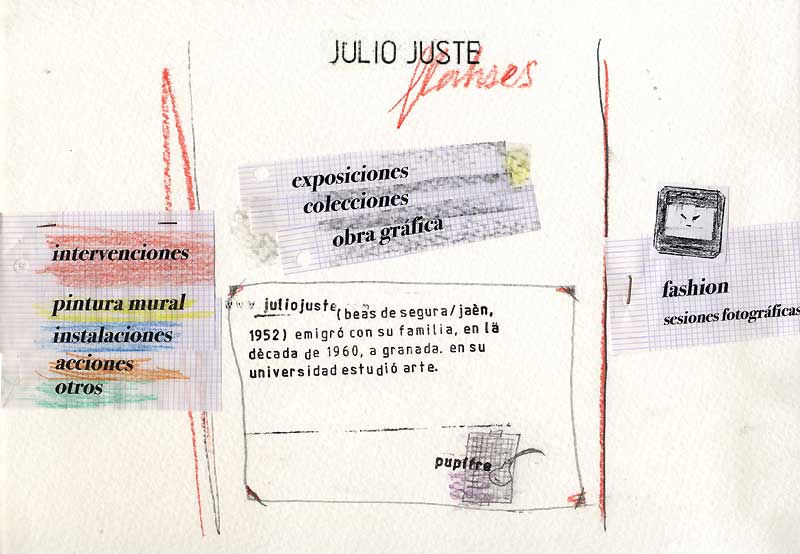 JULIO JUSTE
flahses
exposiciones
colecciones
obra gráfica
intervenciones
pintura mural
instalaciones
acciones
otros
fashion
sesiones fotográficas
www.juliojuste.com
(beas de segura/jaèn,
1952) emigró con su familia, en la
dècada de 1960, a granada. en su
universidad estudió arte.
pupitre